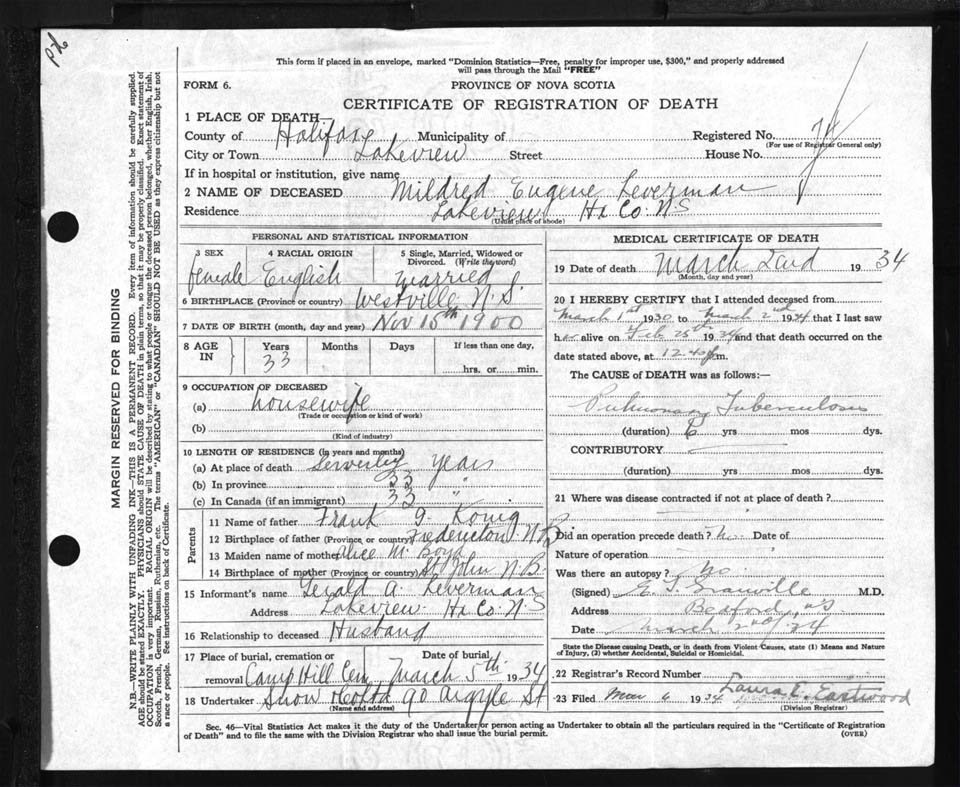 This form if placed in an envelope, marked "Dominion Statistics—Free, penalty for improper use, $300," and properly addressed
will pass through the Mail "FREE"
FORM 6.
PROVINCE OF NOVA SCOTIA
CERTIFICATE OF REGISTRATION OF DEATH
1 PLACE OF DEATH
County of Halifax Municipality of Registered No.
(For use of Registrar General only)
City or Town Lakeview Street House No.
If in hospital or institution, give name
2 NAME OF DECEASED Mildred Eugene Leverman
Residence Lakeview Hx Co. N S
(Usual place of abode)
PERSONAL AND STATISTICAL INFORMATION
3 SEX female
4 RACIAL ORIGIN English
5 Single, Married, Widowed or
Divorced. (Write the word)
Married
6 BIRTHPLACE (Province or country) Westville N.S.
7 DATE OF BIRTH (month, day and year) Nov 15th 1900
8 AGE IN Years 33 Months Days If less than one day,
hrs. or min.
9 OCCUPATION OF DECEASED
(a) housewife
(Trade or occupation or kind of work)
(b)
(Kind of industry)
10 LENGTH OF RESIDENCE (in years and months)
(a) At place of death years
(b) In province 33 "
(c) In Canada (if an immigrant) 33 "
Parents
11 Name of father Frank G. Konig
12 Birthplace of father (Province or country) Fredericton N.B.
13 Maiden name of mother Alice M. Boyd
14 Birthplace of mother (Province or country) St John N.B.
15 Informant's name Gerald A. Leverman
Address Lakeview Hx Co. N S
16 Relationship to deceased Husband
17 Place of burial, cremation or Date of burial
removal Camp Hill Cem March 5th 1934
18 Undertaker Snow 90 Argyle St
(Name and address)
MEDICAL CERTIFICATE OF DEATH
19 Date of death March 2nd 1934
(Month, day and year)
20 I HEREBY CERTIFY that I attended deceased from
March 1st 1930 to March 2nd 1934 that I last saw
her alive on Feb. 25th 1934 and that death occurred on the
date stated above, at 12.40 p.m.
The CAUSE of DEATH was as follows:—
Pulmonary Tuberculosis
(duration) yrs mos dys.
CONTRIBUTORY
(duration) yrs mos dys.
21 Where was disease contracted if not at place of death?
Did an operation precede death? No. Date of
Nature of operation
Was there an autopsy? No.
(Signed) M.D.
Address Bedford, NS
Date March 2nd/34
State the Disease causing Death, or in death from Violent Causes, state (1) Means and Nature
of Injury, (2) whether Accidental, Suicidal or Homicidal.
22 Registrar's Record Number
23 Filed Mar 6 1934 Laura E. Eastwood
(Division Registrar)
Sec. 46—Vital Statistics Act makes it the duty of the Undertaker or person acting as Undertaker to obtain all the particulars required in the "Certificate of Registration
of Death" and to file the same with the Division Registrar who shall issue the burial permit.
(OVER)
MARGIN RESERVED FOR BINDING
N.B.—WRITE PLAINLY WITH UNFADING INK—THIS IS A PERMANENT RECORD. Every item of information should be carefully supplied.
AGE should be stated EXACTLY. PHYSICIANS should STATE CAUSE OF DEATH in plain terms, so that it may be properly classified. Exact statement of
OCCUPATION is very important. RACIAL ORIGIN will be described by stating to what people or tongue the deceased person belonged, whether English, Irish,
Scotch, French, German, Russian, Ruthenian, etc. The terms "AMERICAN" or "CANADIAN" SHOULD NOT BE USED as they express citizenship but not
a race or people. See instructions on back of Certificate.